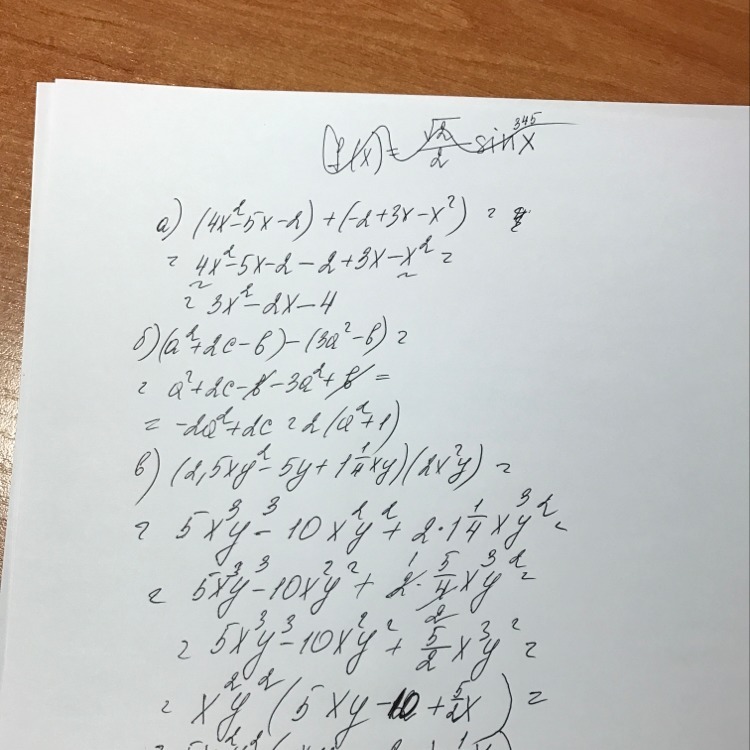 f(x) = √2/2 sin x³⁴⁵
а) (4x²-5x-2)+(-2+3x-x²) =
= 4x²-5x-2-2+3x-x² =
= 3x²-2x-4
б) (a²+2c-b)-(3a²-b) =
= a²+2c-b-3a²+b =
= -2a²+2c = 2(a²+1)
в) (2,5xy²-5y+1 1/4xy)(2x²y) =
= 5x³y³-10x²y²+2·1 1/4x³y² =
= 5x³y³-10x²y²+2·5/4x³y² =
= 5x³y³-10x²y²+5/2x³y² =
= x²y²(5xy-10+5/2x) =